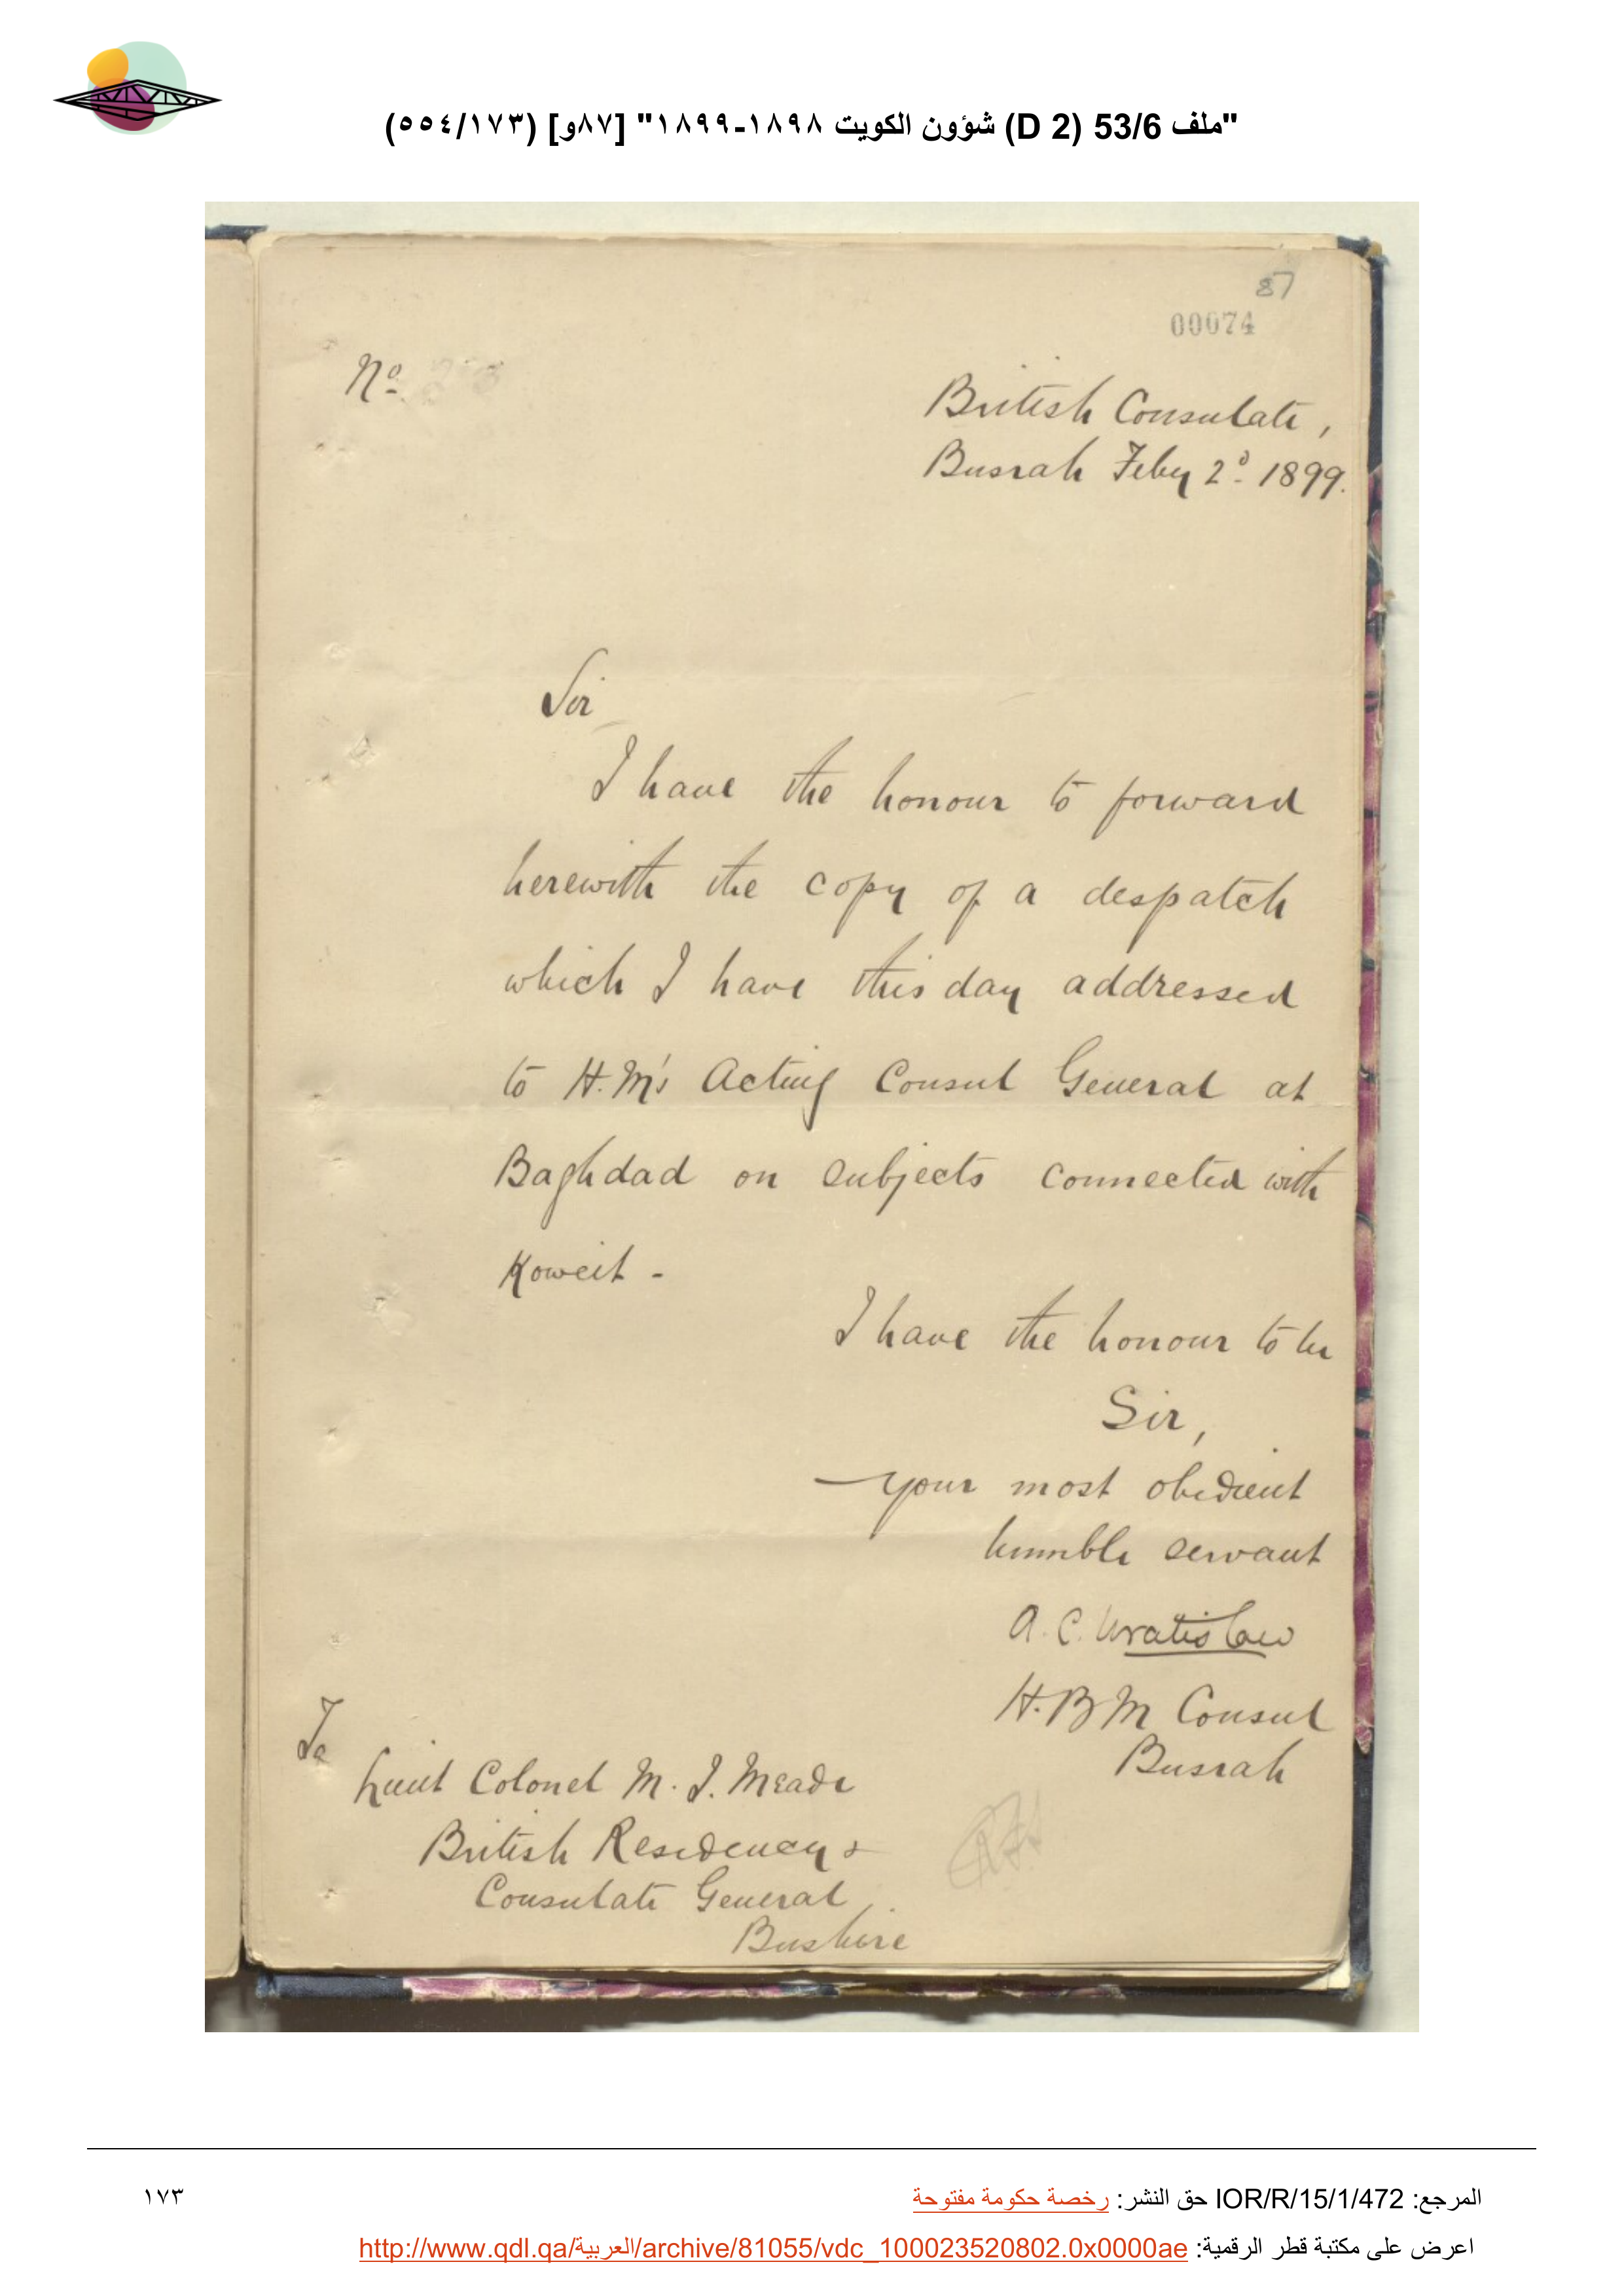 "ملف 53/6 (D 2) شؤون الكويت ١٨٩٨-١٨٩٩" [٨٧و] (٥٥٤/١٧٣)
87
00074
Nº
British Consulate,
Busrah Feby 2ᵈ 1899.
Sir
I have the honour to forward
herewith the copy of a despatch
which I have this day addressed
to H.M's Acting Consul General at
Baghdad on subjects connected with
Koweit -
I have the honour to be
Sir,
your most obedient
humble servant
A. C. Wratislaw
H. B M Consul
Busrah
To
Lieut Colonel M. J. Meade
British Residency &
Consulate General
Bushire
المرجع: IOR/R/15/1/472 حق النشر: رخصة حكومة مفتوحة
١٧٣
اعرض على مكتبة قطر الرقمية: http://www.qdl.qa/العربية/archive/81055/vdc_100023520802.0x0000ae